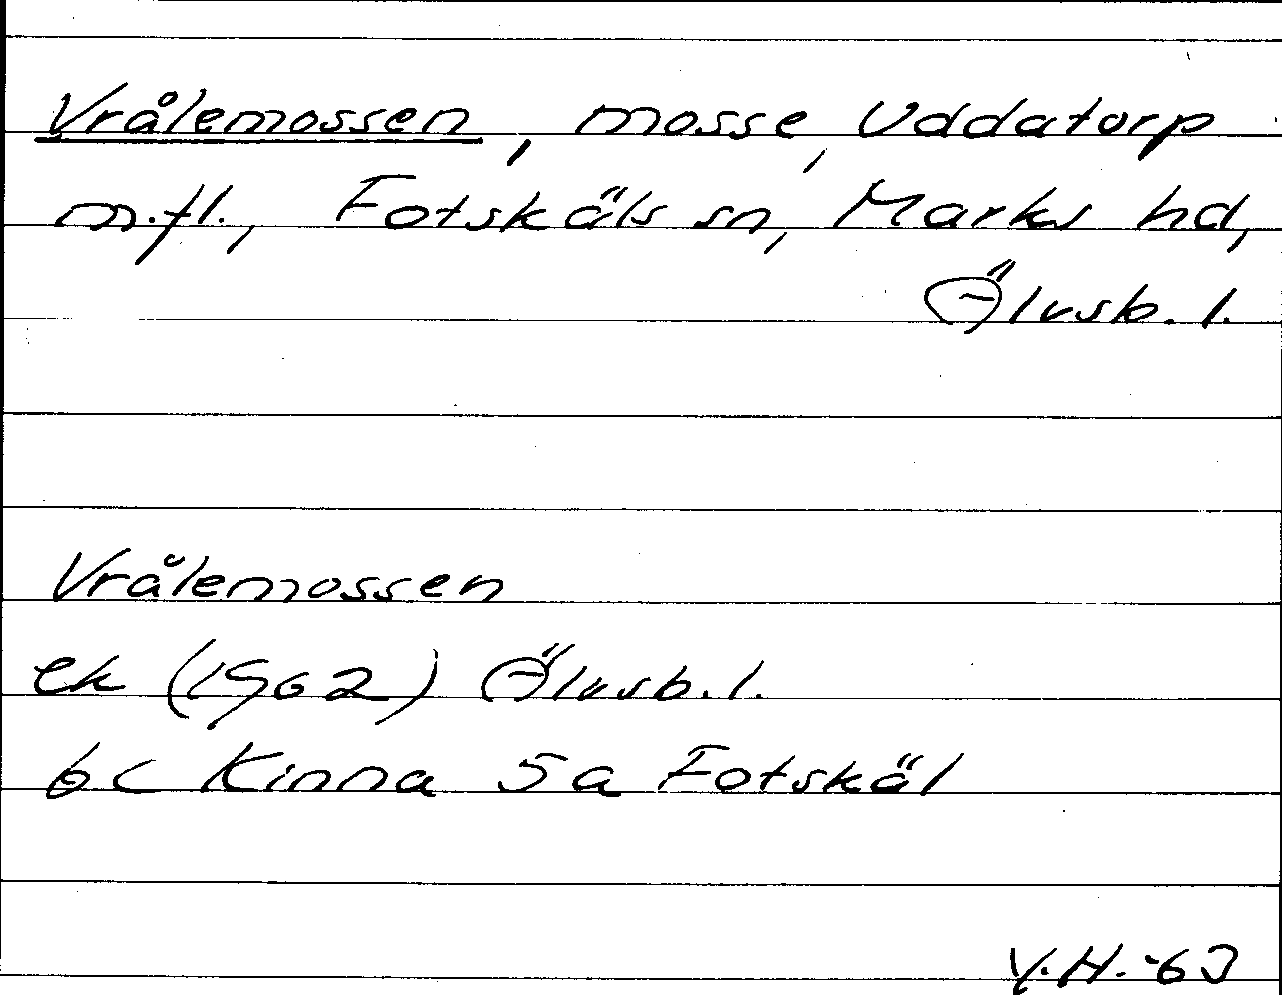 Vrålemossen, mosse, Uddatorp
m.fl., Fotskäls sn, Marks hd,
Älvsb. l.
Vrålemossen
ek (1962) Älvsb. l.
6c Kinna 5a Fotskäl
V.H. -63